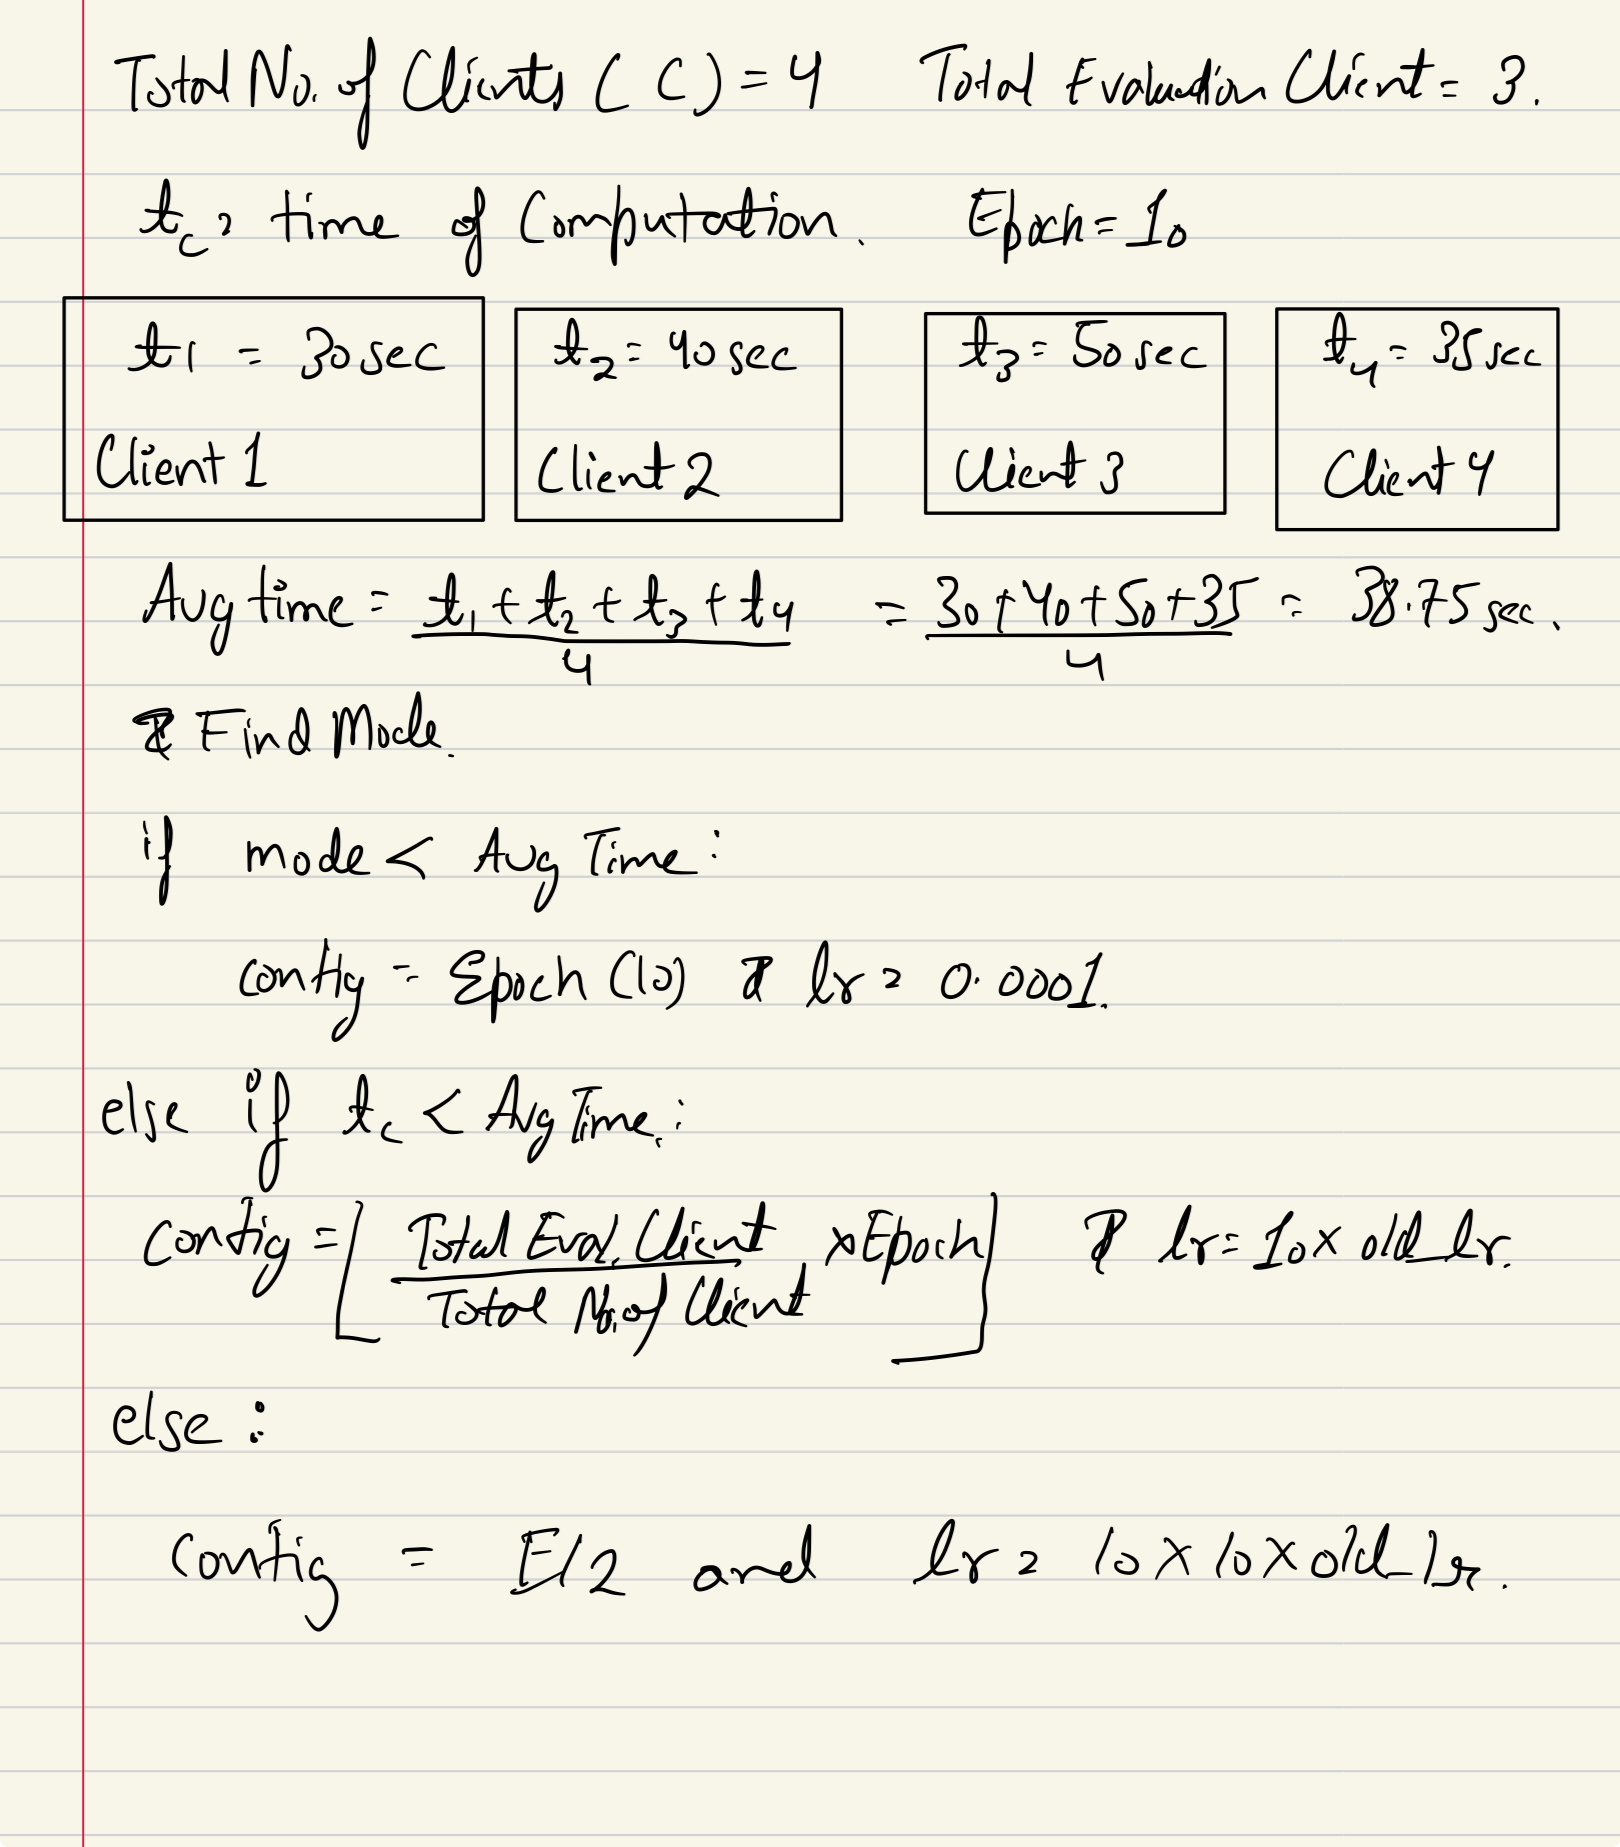 Total No. of Clients ( C ) = 4 Total Evaluation Client = 3.
tc = time of Computation. Epoch = 10
t1 = 30 sec t2 = 40 sec t3 = 50 sec t4 = 35 sec
Client 1 Client 2 Client 3 Client 4
Avg time = t1 + t2 + t3 + t4 / 4 = 30 + 40 + 50 + 35 / 4 = 38.75 sec.
& Find Mode.
if mode < Avg Time :
config = Epoch (10) & lr = 0.0001.
else if tc < Avg Time :
config = [ Total Eval. Client / Total No. of Client x Epoch ] & lr = 10 x old_lr.
else :
config = E/2 and lr = 10 x 10 x old_lr.